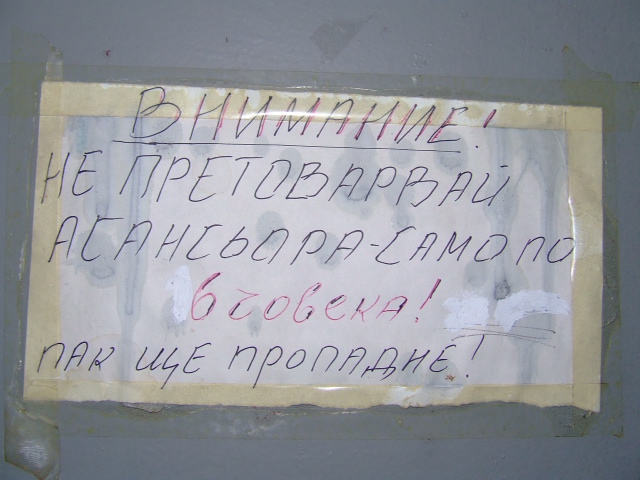 ВНИМАНИЕ!
НЕ ПРЕТОВАРВАЙ
АСАНСЬОРА-САМО ПО
6 човека!
ПАК ЩЕ ПРОПАДНЕ!